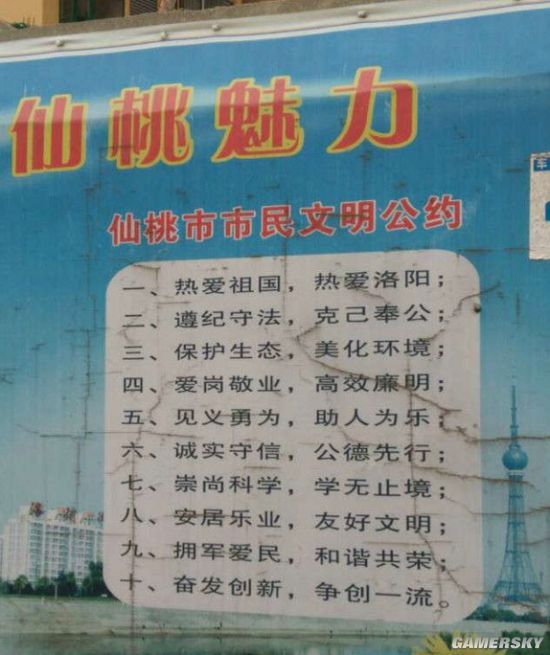 仙桃魅力
仙桃市市民文明公约
一、热爱祖国，热爱洛阳；
二、遵纪守法，克己奉公；
三、保护生态，美化环境；
四、爱岗敬业，高效廉明；
五、见义勇为，助人为乐；
六、诚实守信，公德先行；
七、崇尚科学，学无止境；
八、安居乐业，友好文明；
九、拥军爱民，和谐共荣；
十、奋发创新，争创一流。
GAMERSKY